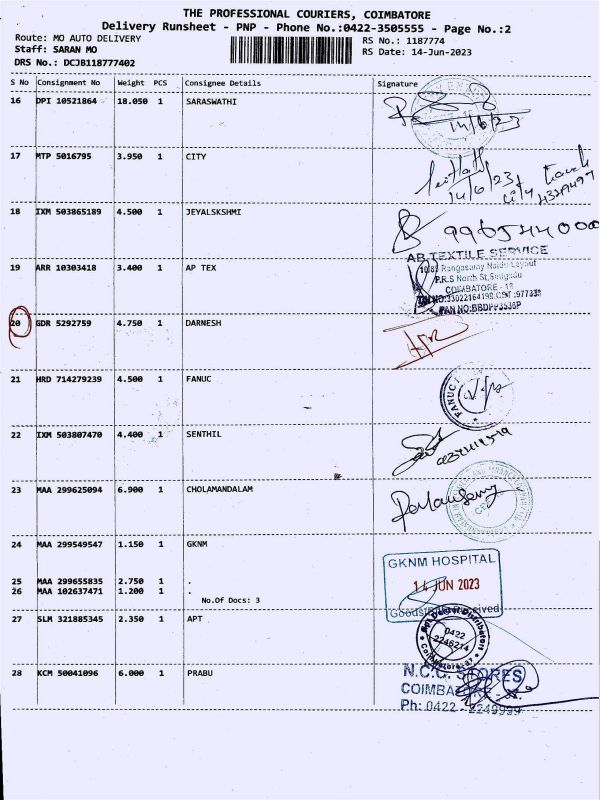 THE PROFESSIONAL COURIERS, COIMBATORE
Delivery Runsheet - PNP - Phone No.:0422-3505555 - Page No.:2
Route: MO AUTO DELIVERY
RS No.: 1187774
Staff: SARAN MO
RS Date: 14-Jun-2023
DRS No.: DCJB118777402
S No Consignment No Weight PCS Consignee Details Signature
16 DPI 10521864 18.050 1 SARASWATHI
14/6/23
17 MTP 5016795 3.950 1 CITY
14/6/23
18 IXM 503865189 4.500 1 JEYALSKSHMI
AB TEXTILE SERVICE
19 ARR 10303418 3.400 1 AP TEX
P.R.S North St,
COIMBATORE - 18
20 GDR 5292759 4.750 1 DARNESH
21 HRD 714279239 4.500 1 FANUC
FANUC
22 IXM 503807470 4.400 1 SENTHIL
23 MAA 299625094 6.900 1 CHOLAMANDALAM
24 MAA 299549547 1.150 1 GKNM
GKNM HOSPITAL
14 JUN 2023
25 MAA 299655835 2.750 1 .
26 MAA 102637471 1.200 1 .
No.Of Docs: 3
27 SLM 321885345 2.350 1 APT
0422
2246214
28 KCM 50041096 6.000 1 PRABU
N.C.G. STORES
Ph: 0422 - 2249999